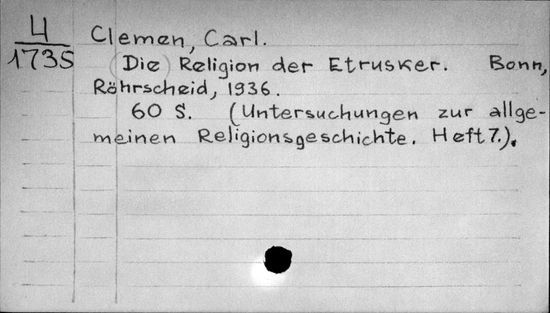 4
1735
Clemen, Carl.
(Die) Religion der Etrusker. Bonn,
Röhrscheid, 1936.
60 S. (Untersuchungen zur allge-
meinen Religionsgeschichte. Heft 7.).